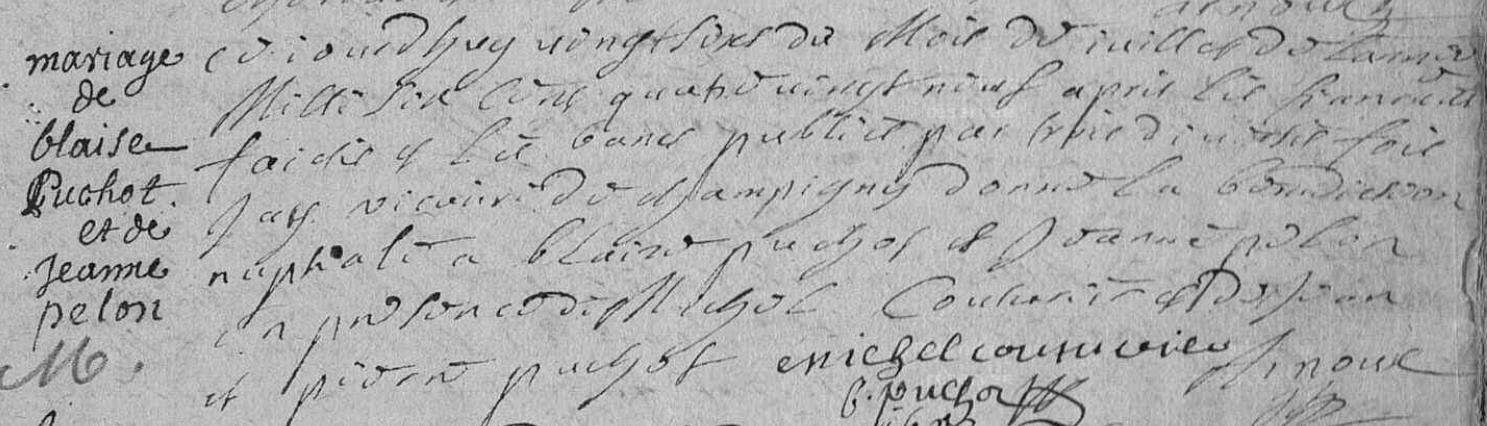 mariage
de
blaise
Puchot
et de
jeanne
pelon
M.
ce iourdhuy vingt sixe du Mois de iuillet de lannee
Mille six cens quatre vingt neuf apres les fiancaille
faicte et les bancs publie par trois diverse fois
Jay vicaire de champigny donne la benediction
nuptiale a blaise puchot et Jeanne pelon
en presence de Michel Couturier et de Jean
et pierre puchot michel couturier Arnoul
b. puchot